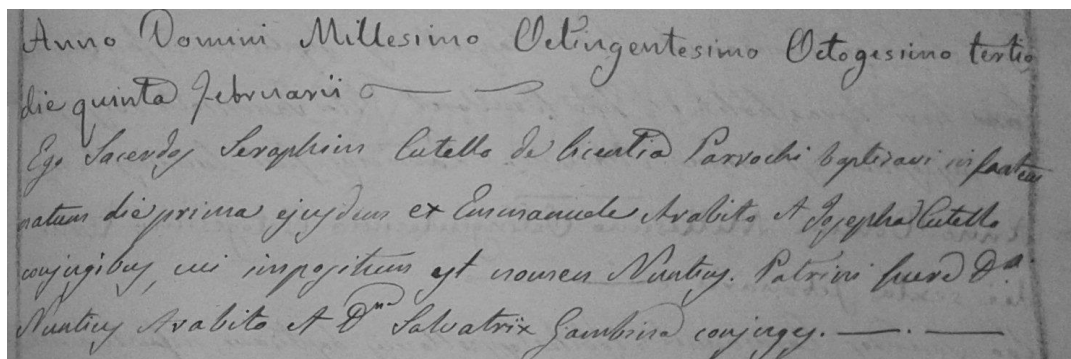 Anno Domini Millesimo Octingentesimo Octogesimo tertio
die quinta Februarii
Ego Sacerdos Seraphinus Cutello de licentia Parrochi baptizavi infantem
natum die prima ejusdem ex Emmanuele Arabito et Josepha Cutello
conjugibus, cui impositum est nomen Nuntius. Patrini fuere D.
Nuntius Arabito et D.na Salvatrix Gambino conjuges.